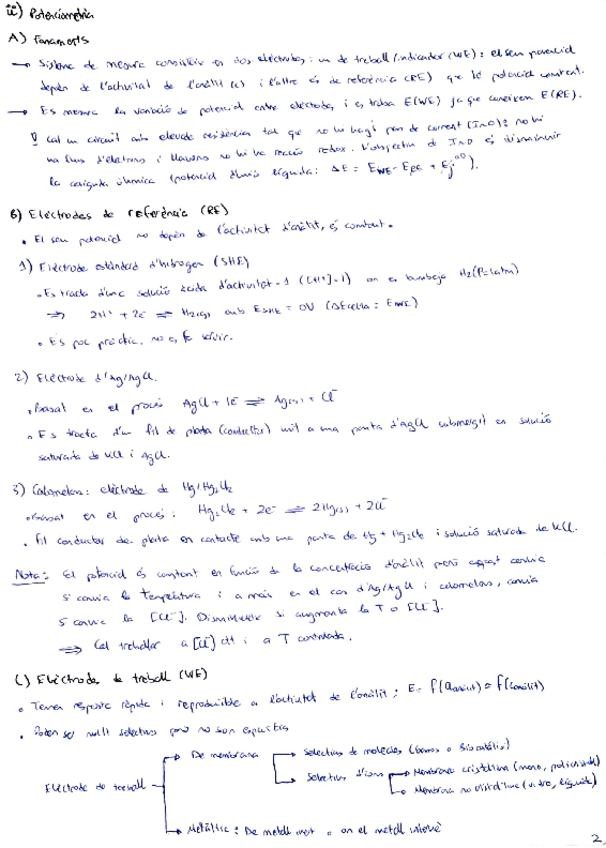 ii) Potenciometria
A) Fonaments
→ Sistema de mesura consisteix en dos elèctrodes: un de treball/indicador (WE): el seu potencial
depèn de l'activitat de l'anàlit (c) i l'altre és de referència (RE) que té potencial constant.
→ Es mesura la variació de potencial entre elèctrodes i es troba E(WE) ja que coneixem E(RE).
Cal un circuit amb elevada resistència tal que no hi hagi pas de corrent (I≈0): no hi
ha flux d'electrons i llavors no hi ha reacció redox. L'objectiu de I≈0 és disminuir
la caiguda òhmica (potencial d'unió líquida: ΔE = EWE - ERE + Ej).
B) Elèctrodes de referència (RE)
• El seu potencial no depèn de l'activitat d'anàlit, és constant.
1) Elèctrode estàndard d'hidrogen (SHE)
• Es tracta d'una solució àcida d'activitat = 1 ([H+]=1) on es bombeja H2 (P=1atm)
⇒ 2H+ + 2e- ⇌ H2(g) amb ESHE = 0V (ΔEcel·la = EWE)
• És poc pràctic, no es fa servir.
2) Elèctrode d'Ag/AgCl.
• Basat en el procés AgCl + 1e- ⇌ Ag(s) + Cl-
• Es tracta d'un fil de plata (conductor) unit a una pasta d'AgCl submergit en solució
saturada de KCl i AgCl.
3) Calomelans: elèctrode de Hg/Hg2Cl2
• Basat en el procés: Hg2Cl2 + 2e- ⇌ 2Hg(s) + 2Cl-
• Fil conductor de plata en contacte amb una pasta de Hg + Hg2Cl2 i solució saturada de KCl.
Nota: El potencial és constant en funció de la concentració d'anàlit però canvia
si canvia la Temperatura i a més en el cas d'Ag/AgCl i calomelans, canvia
si canvia la [Cl-]. Disminueix si augmenta la T o [Cl-].
⇒ Cal treballar a [Cl-] ctt i a T controlada.
C) Elèctrodes de treball (WE)
• Tenen resposta ràpida i reproduïble a l'activitat de l'anàlit: E = f(aanàlit) ≈ f(canàlit)
• Poden ser molt selectius però no son específics
Elèctrode de treball
→ De membrana
→ Selectius de molècules (Gasos o Biocatàlisi)
→ Selectius d'ions
→ Membrana cristal·lina (mono, policristall)
→ Membrana no cristal·lina (vidre, líquida)
→ Metàl·lic: De metall inert o on el metall intervé
2